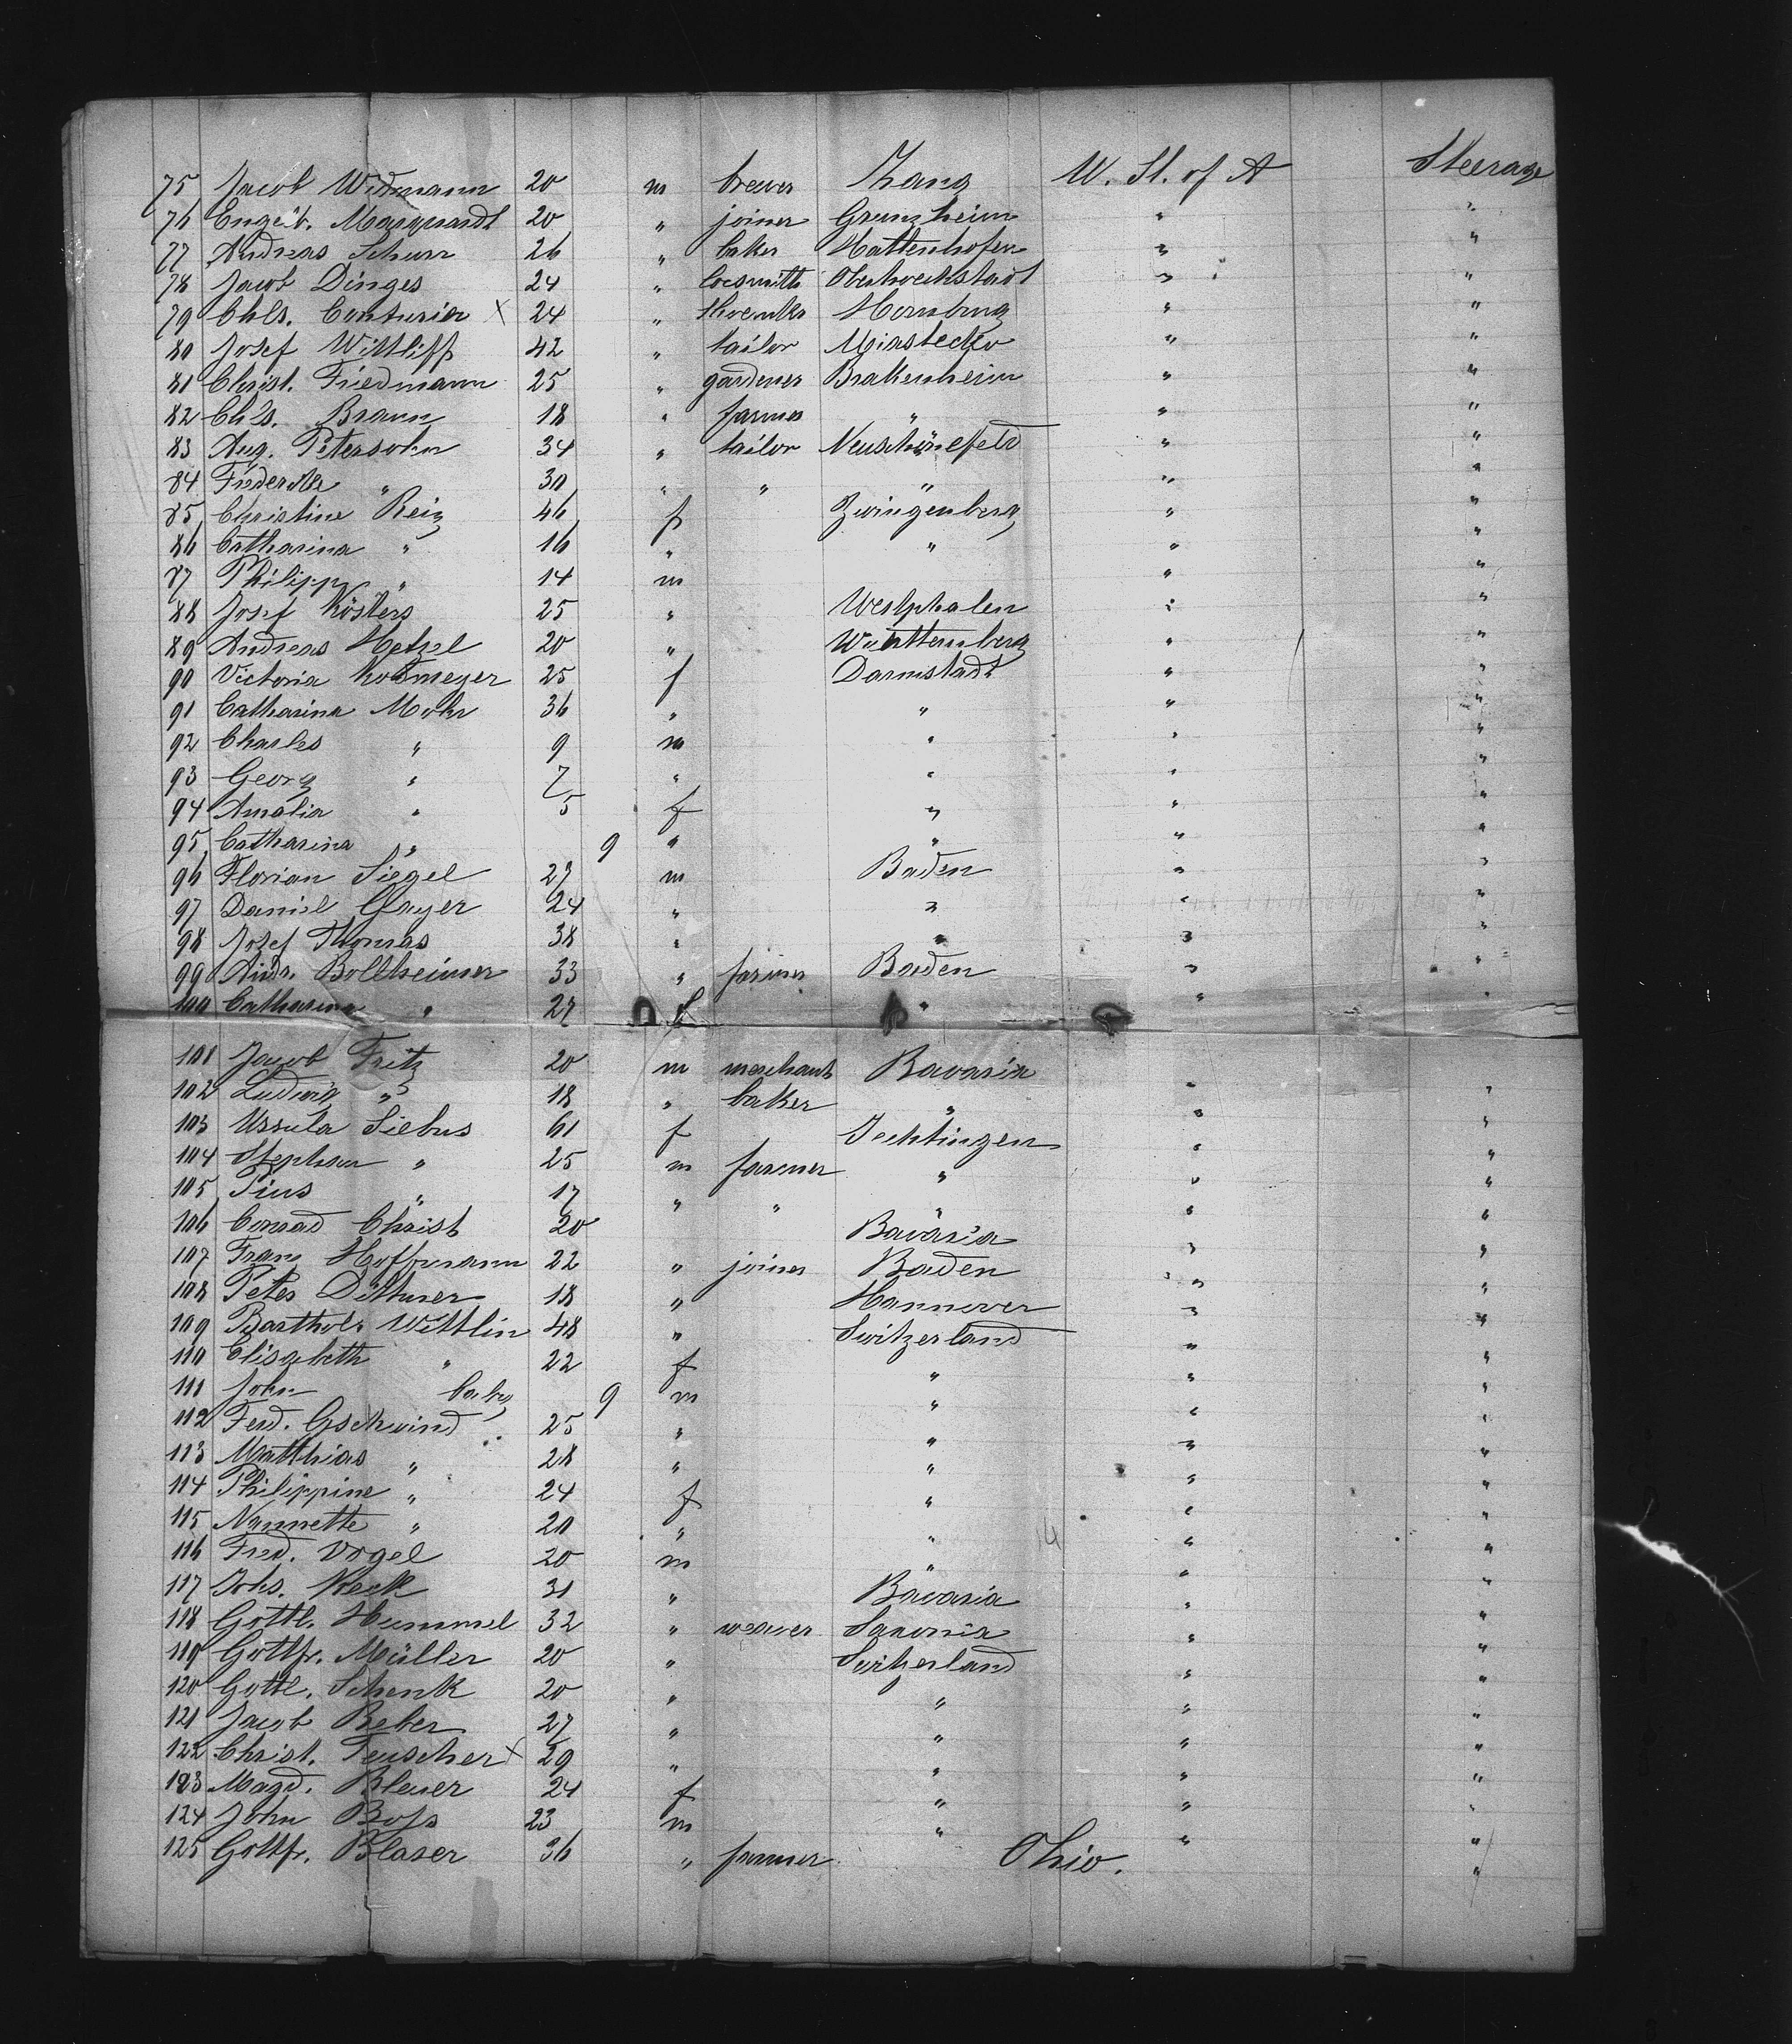 75 Jacob Widmann 20 m brewer Zhang W. St. of A Steerage
76 Engelb. Marquardt 20 " joiner Grunzheim " "
77 Andreas Schurr 26 " baker Hattenhofen " "
78 Jacob Dinges 24 " locsmith Oberhoechstadt " "
79 Chls. Couturier X 24 " shoemkr Hornburg " "
80 Josef Wittliff 42 " tailor Miasteczko " "
81 Christ. Friedmann 25 " gardener Brakenheim " "
82 Chls. Braun 18 " farmer " " "
83 Aug. Petersohn 34 " tailor Neuschönefeld " "
84 Friederike " 30 " " " " "
85 Christine Reiz 46 f Zwingenberg " "
86 Catharina " 16 " " " "
87 Philipp " 14 m " "
88 Josef Kösters 25 " Westphalen " "
89 Andreas Hetzel 20 " Württemberg " "
90 Victoria 25 f Darmstadt " "
91 Catharina Mohr 36 " " " "
92 Charles " 9 m " " "
93 Georg " 7 " " " "
94 Amalia " 5 f " " "
95 Catharina " 9 " " " "
96 Florian Siegel 29 m Baden " "
97 Daniel Gayer 24 " " " "
98 Josef Thomas 38 " " " "
99 Andr. Bollheimer 33 " farmer Baden " "
100 Catharina " 27 f " " "
101 Jacob Fritz 20 m merchant Bavaria
102 Ludwig " 18 " baker " " "
103 Ursula Siebus 61 f Jechtingen " "
104 Stephan " 25 m farmer " " "
105 Pius " 17 " " " " "
106 Conrad Christ 20 Bavaria " "
107 Franz Hoffmann 22 " joiner Baden " "
108 Peter Dittmer 18 " Hannover " "
109 Barthol. Wittlin 48 " Switzerland " "
110 Elisabeth " 22 f " " "
111 John baby 9 m " " "
112 Ferd. Gschwind 25 " " " "
113 Matthias " 28 " " " "
114 Philippine " 24 f " " "
115 Nannette " 20 " " " "
116 Fred. Vogel 20 m " " "
117 Johs. Keck 31 " Bavaria " "
118 Gottl. Hummel 32 " weaver Saxonia " "
119 Gottfr. Müller 20 " Switzerland " "
120 Gottl. Schenk 20 " " " "
121 Jacob Reber 27 " " " "
122 Christ. Teuscher X 29 " " " "
123 Magd. Bleuer 24 f " " "
124 John Boss 23 m " " "
125 Gottfr. Blaser 36 " farmer Ohio. "